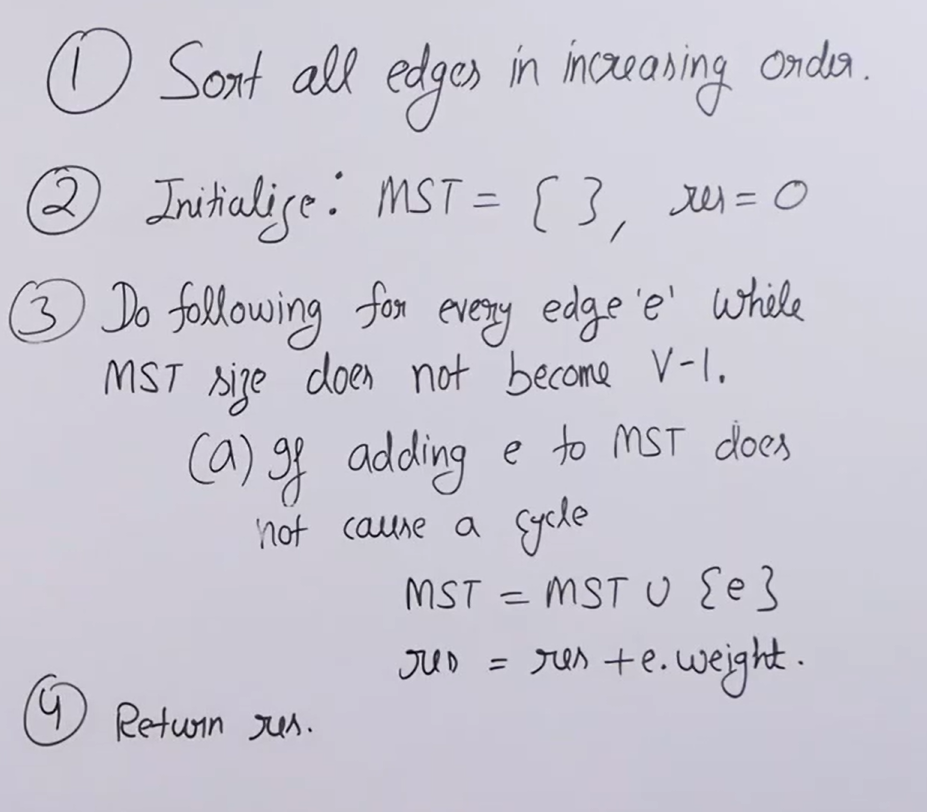 ① Sort all edges in increasing order.
② Initialize: MST = { }, res = 0
③ Do following for every edge 'e' while
MST size does not become V-1.
(a) If adding e to MST does
not cause a cycle
MST = MST ∪ {e}
res = res + e.weight.
④ Return res.